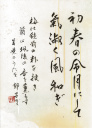 初春の令月にして
氣淑く風和ぎ
梅は鏡前の粉を披き
蘭は珮後の香を薫らす